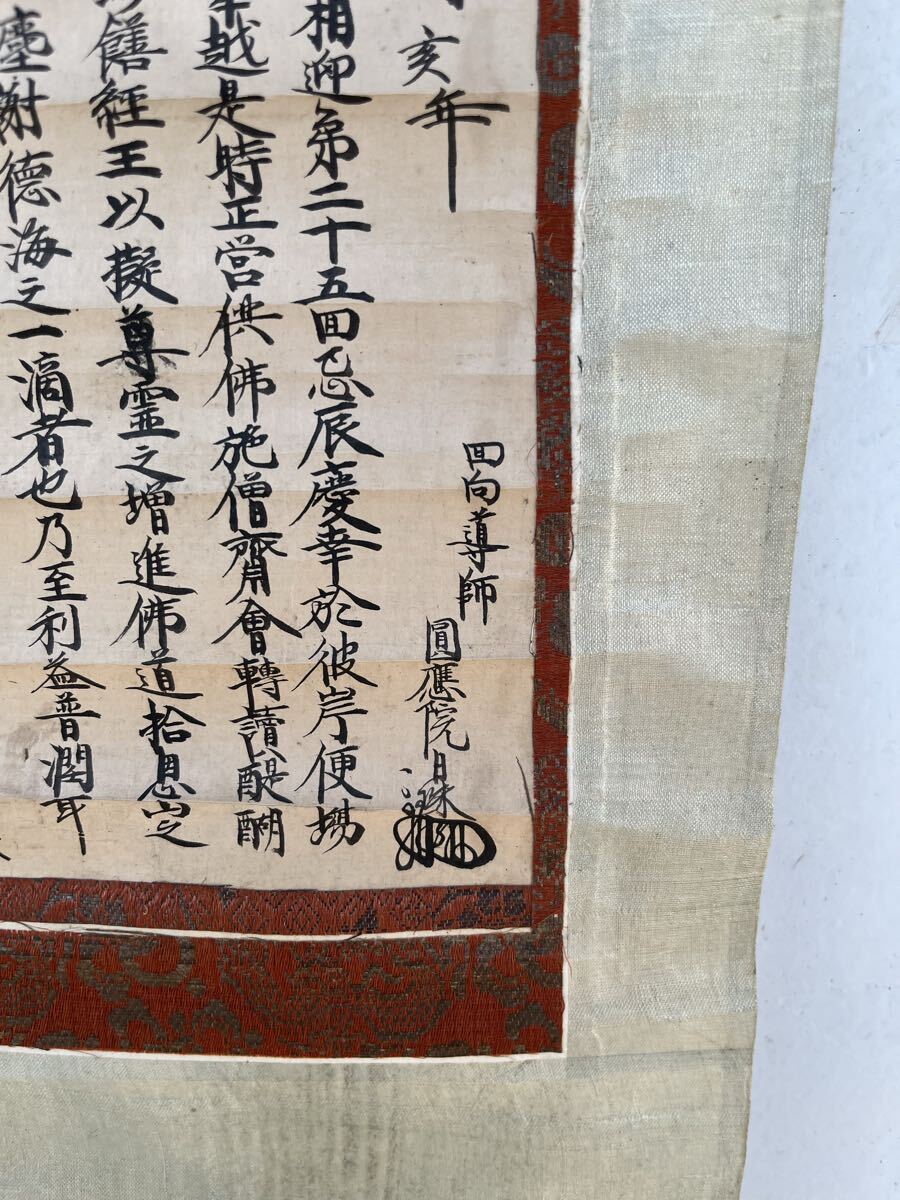 亥年
回向導師
圓應院日
相迎第二十五回忌辰慶幸於彼岸便場
越是時正営供佛施僧齋會轉讀醍醐
饍經王以擬尊霊之増進佛道拾恩定
塵謝德海之一滴者也乃至利益普潤耳